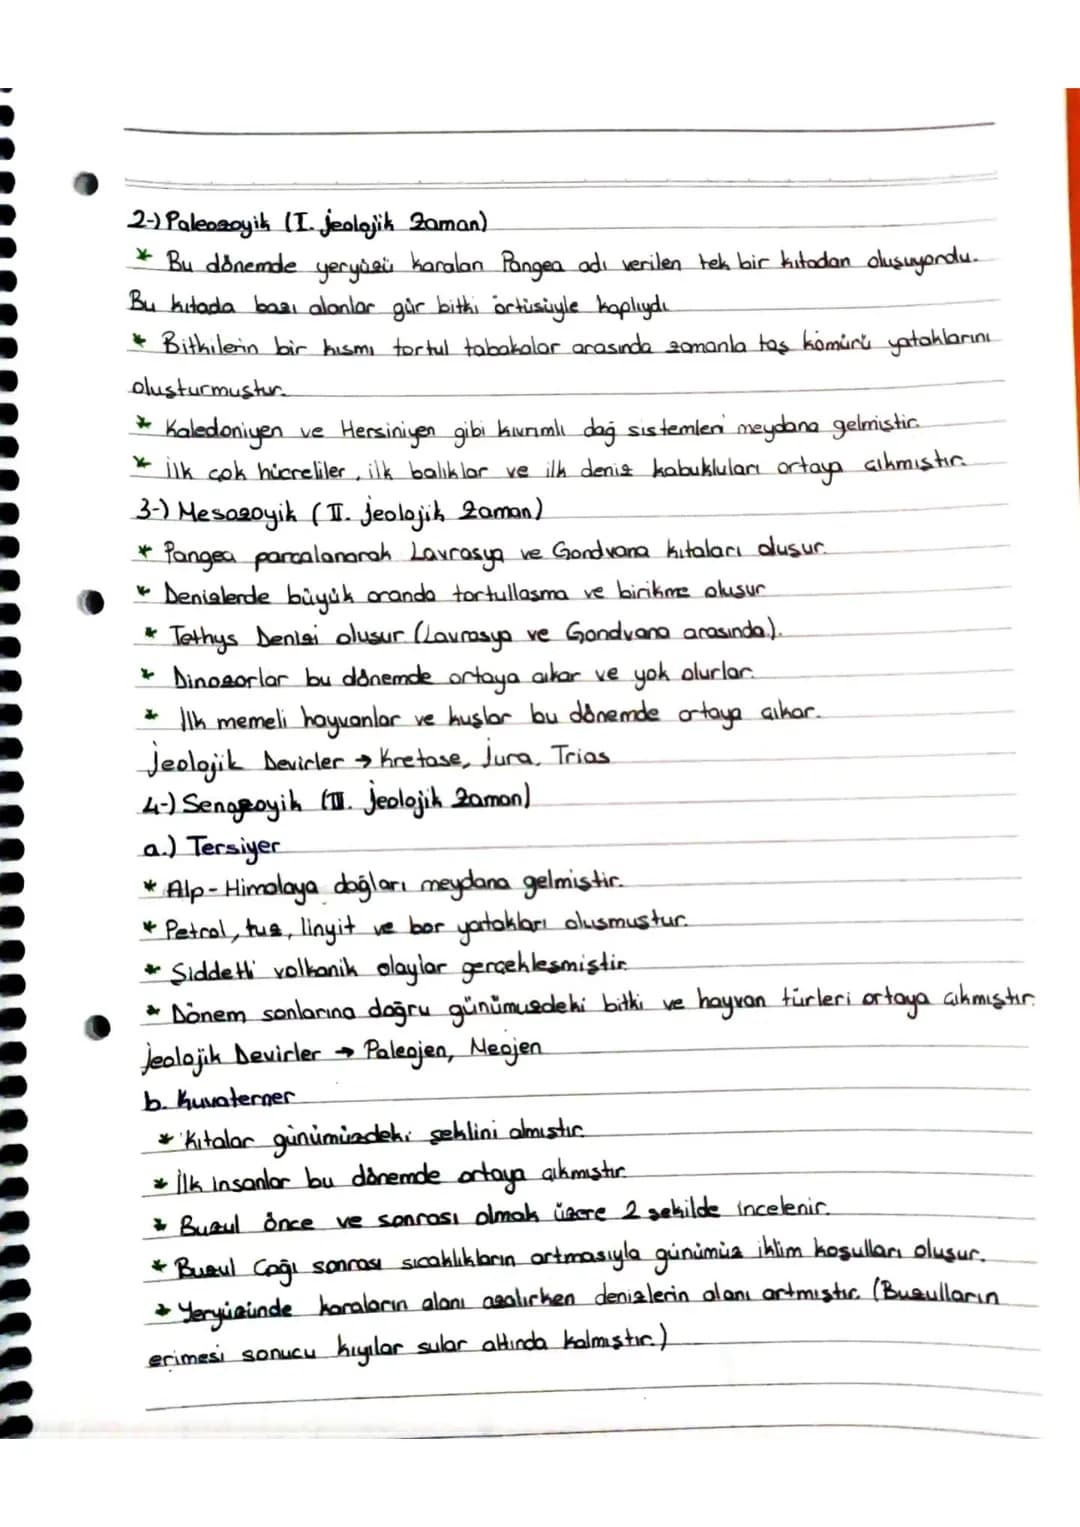 2-) Paleozoyik (I. jeolojik Zaman)
* Bu dönemde yeryüzü karaları Pangea adı verilen tek bir kıtadan oluşuyordu.
Bu kıtada bazı alanlar gür bitki örtüsüyle kaplıydı
* Bitkilerin bir kısmı tortul tabakalar arasında zamanla taş kömürü yataklarını
oluşturmuştur.
* Kaledoniyen ve Hersiniyen gibi kıvrımlı dağ sistemleri meydana gelmiştir.
* İlk çok hücreliler, ilk balıklar ve ilk deniz kabukluları ortaya çıkmıştır.
3-) Mesozoyik (II. jeolojik Zaman)
* Pangea parçalanarak Lavrasya ve Gondvana kıtaları oluşur.
* Denizlerde büyük oranda tortullaşma ve birikme oluşur
* Tethys Denizi oluşur (Lavrasya ve Gondvana arasında).
* Dinozorlar bu dönemde ortaya çıkar ve yok olurlar.
* İlk memeli hayvanlar ve kuşlar bu dönemde ortaya çıkar.
Jeolojik Devirler → Kretase, Jura, Trias
4-) Senozoyik (III. jeolojik Zaman)
a.) Tersiyer
* Alp-Himalaya dağları meydana gelmiştir.
* Petrol, tuz, linyit ve bor yatakları oluşmuştur.
* Şiddetli volkanik olaylar gerçekleşmiştir.
* Dönem sonlarına doğru günümüzdeki bitki ve hayvan türleri ortaya çıkmıştır.
Jeolojik Devirler → Paleojen, Neojen
b. Kuvaterner
* Kıtalar günümüzdeki şeklini almıştır.
* İlk insanlar bu dönemde ortaya çıkmıştır.
* Buzul önce ve sonrası olmak üzere 2 şekilde incelenir.
* Buzul Çağı sonrası sıcaklıkların artmasıyla günümüz iklim koşulları oluşur.
* Yeryüzünde karaların alanı azalırken denizlerin alanı artmıştır. (Buzulların
erimesi sonucu kıyılar sular altında kalmıştır.)